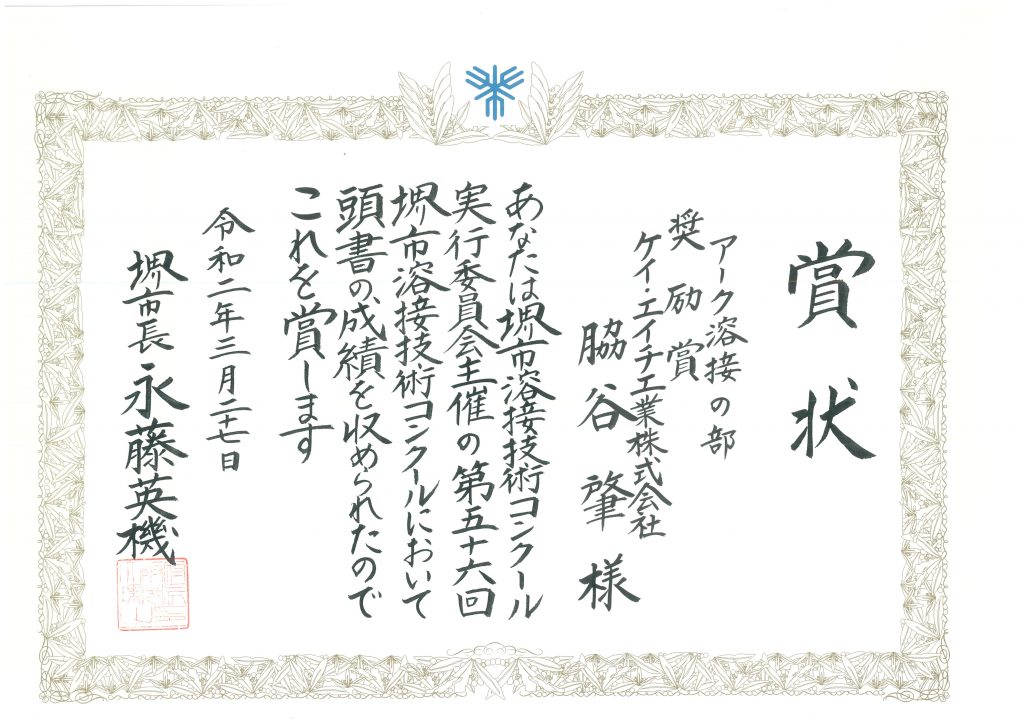 賞状
アーク溶接の部
奨励賞
ケイ・エイチ工業株式会社
脇谷肇様
あなたは堺市溶接技術コンクール
実行委員会主催の第五十六回
堺市溶接技術コンクールにおいて
頭書の成績を収められたので
これを賞します
令和二年三月二十七日
堺市長 永藤英機